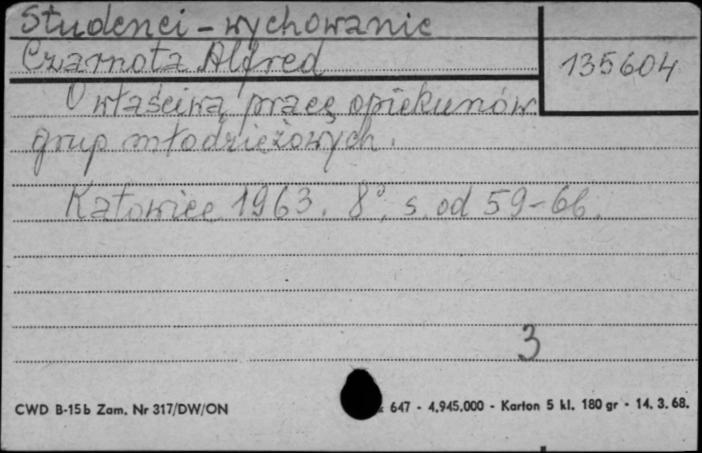 Studenci - wychowanie
Czarnota Alfred
135604
O właściwą pracę opiekunów
grup młodzieżowych.
Katowice 1963. 8°, s. od 59-66.
3
CWD B-15b Zam. Nr 317/DW/ON
647 - 4.945.000 - Karton 5 kl. 180 gr - 14. 3. 68.